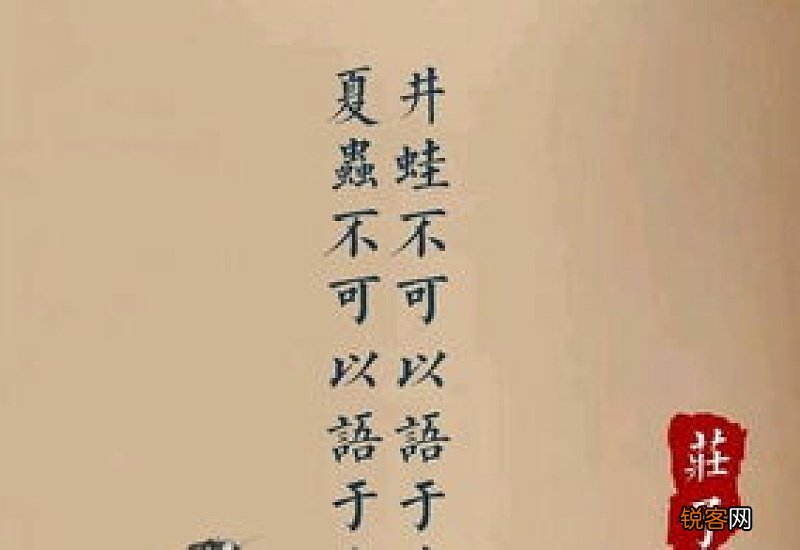 井蛙不可以語于
夏蟲不可以語于
莊子
锐客网